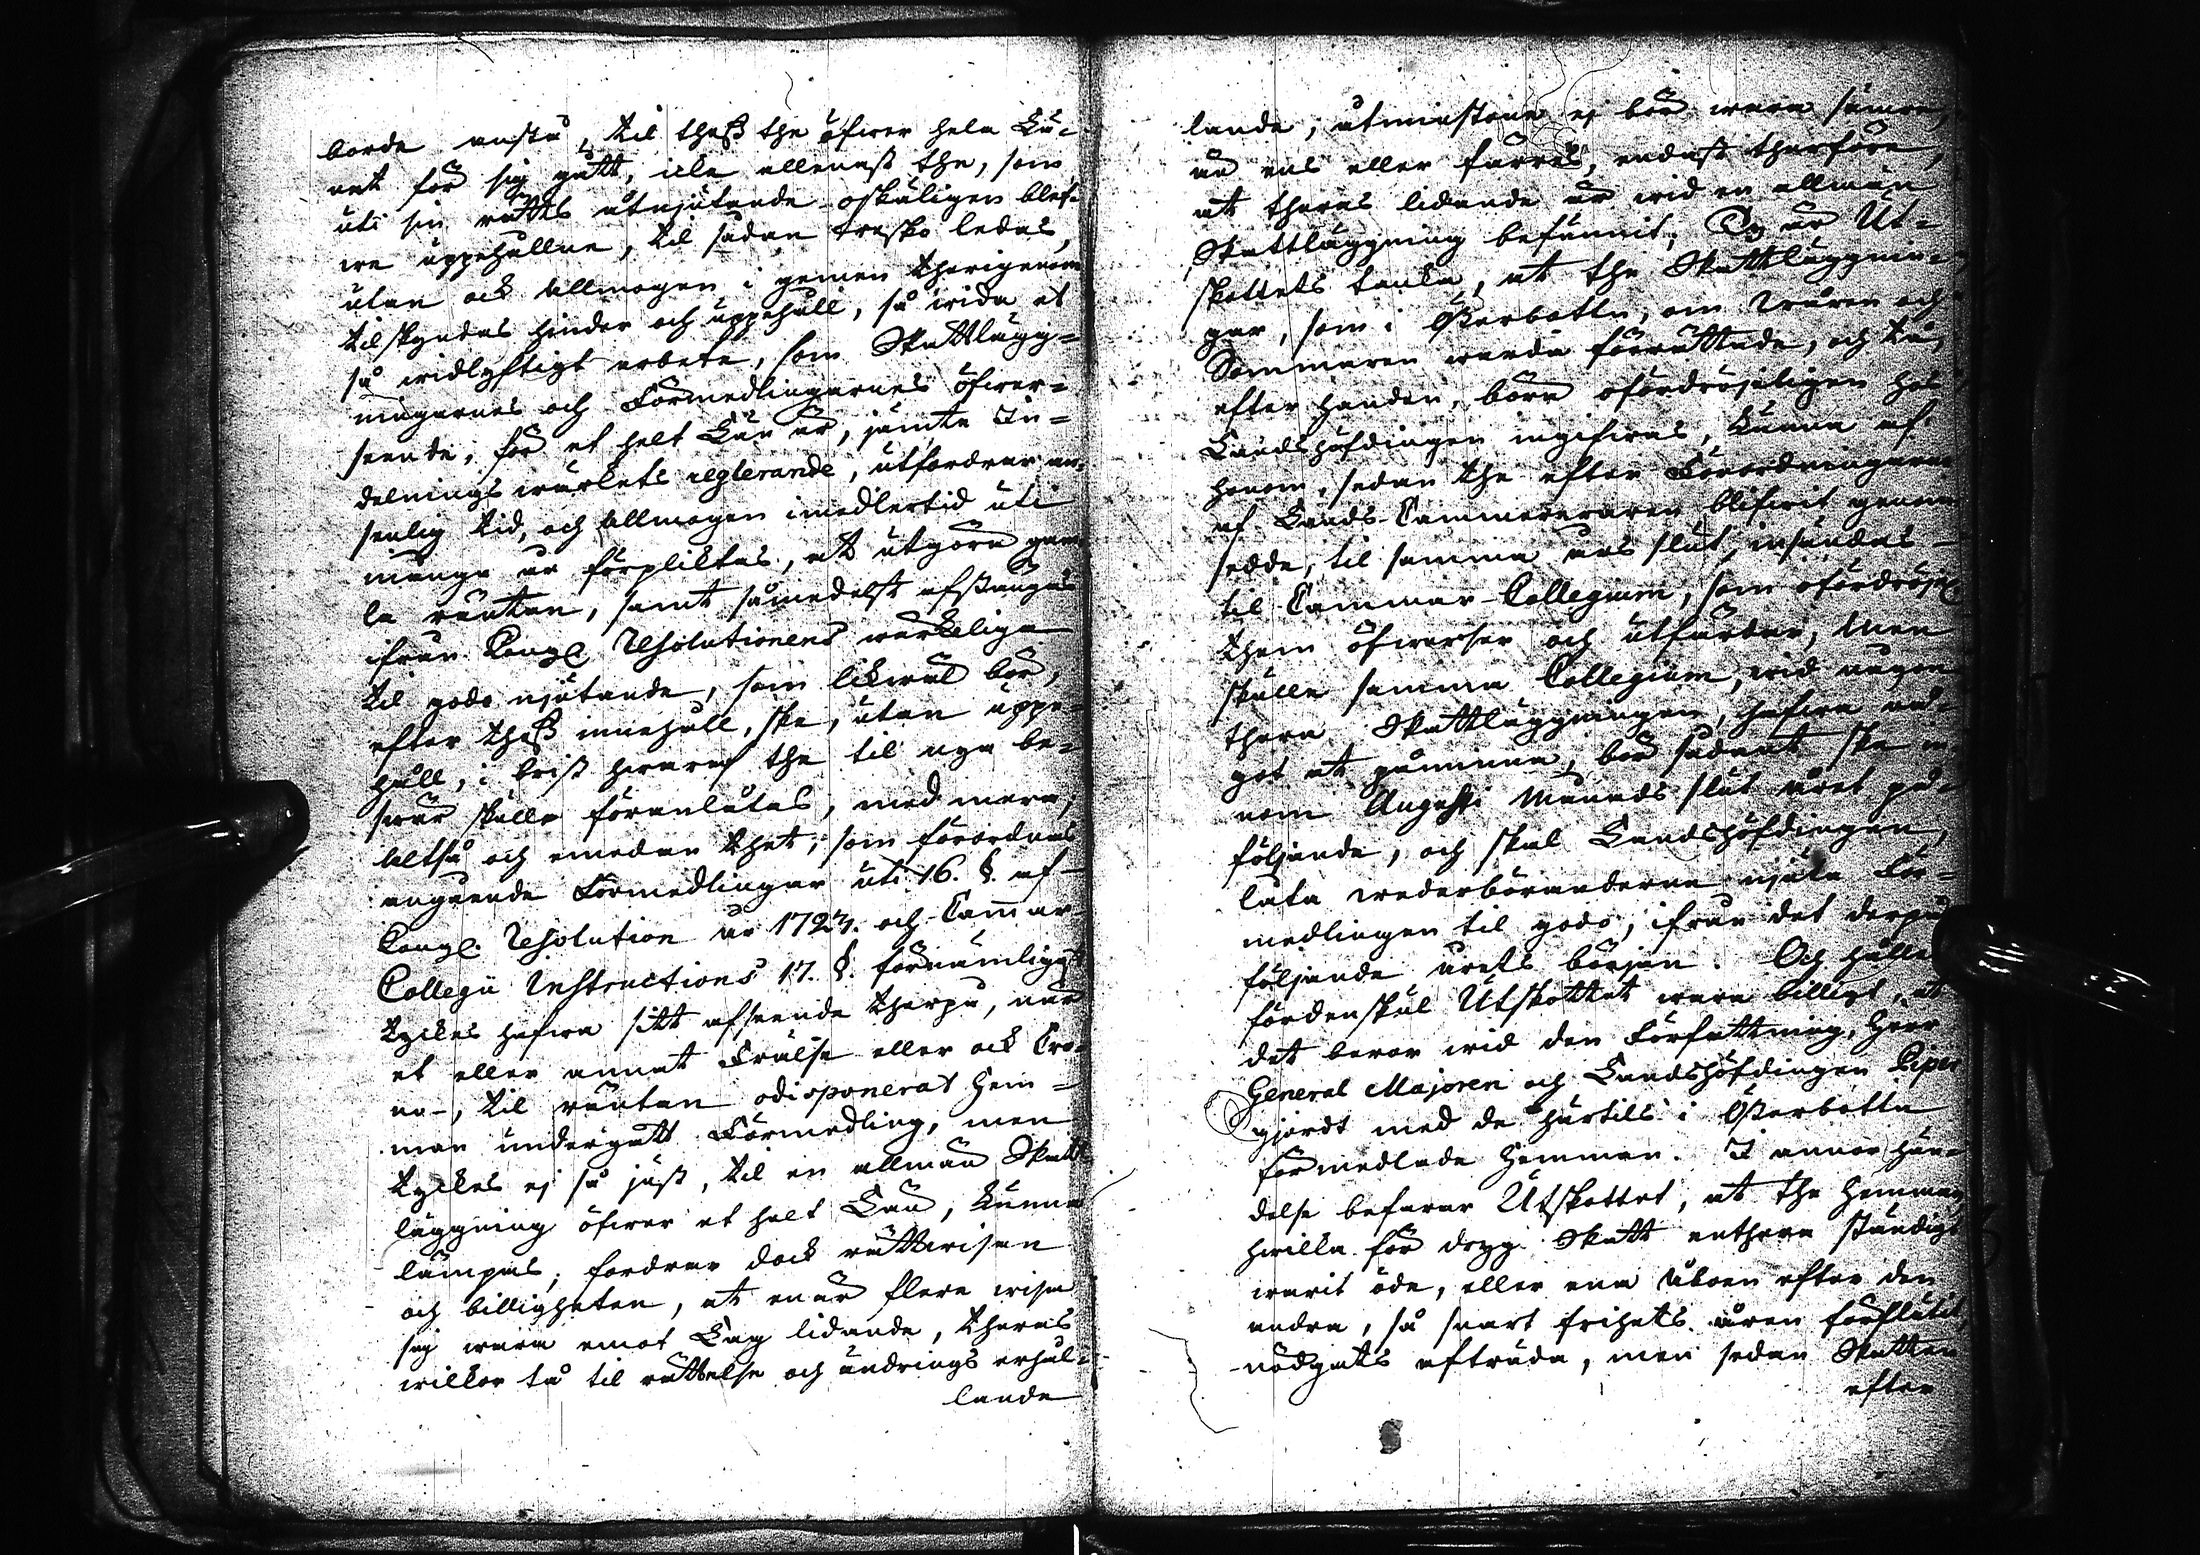 borde anstå, til theß the öfwer hela Lä-
net för sig gått, icke allenast the, som
uti sin rätts åtniutande oskäligen blef-
we uppehållne, til sådan tresko ledas,
utan ock allmogen i gemen therigenom
tilskyndas hinder och uppehåll, så wida et
så widlyftigt arbete, som Skattlägg-
ningarnes och Förmedlingarnes öfwer-
seende, för et helt Län är, jämte In-
delnings wärkets reglerande, utfordrar an-
senlig tid, och allmogen imedlertid uti
många år förpliktas, at utgöra gam-
la räntan, samt såmedelst afstänges
ifrån Kongl. Resolutionens wärkeliga
til godo niutande, som likwäl bör,
efter theß innehåll, ske, utan uppe-
håll, i brist hwaraf the til nya be-
swär skulle föranlåtas, med mera;
Altså och emedan thet, som förordnas
angående Förmedlingar uti 16. §. af
Kongl. Resolution år 1727. och Cammar
Collegii Instructions 17. §. förnämligast
tyckes hafwa sitt afseende therpå, när
et eller annat Frälse eller ock Cro-
no-, til räntan odisponerat hem-
man undergått Förmedling, men
tyckes ej så just, til en allmän Skatt-
läggning öfwer et helt Län, kunna
lämpas; fordrar dock rättwisan
och billigheten, at enär flere wisa
sig wara emot Lag lidande, theras
willkor tå til rättelse och ändrings erhål-
lande
lande, åtminstone ej bör wara sämre,
än ens eller fåres, endast therföre,
at theras lidande är wid en allmän
Skattläggning befunnit; Ty är Ut-
skottets tanka, at the Skattläggnin-
gar, som i Österbotten, om Wåren och
Sommaren warda förrättade, och tå,
efter handen, böra ofördröjeligen hos
Landshöfdingen ingifwas, kunna af
honom, sedan the efter Förordningarne
af Lands-Cammereraren blifwit genom-
sedde, til samma års slut, insändas
til Cammar-Collegium, som ofördröjel.
them öfwerser och utfärdar, Men
skulle samma Collegium, wid någon
thera Skattläggningen, hafwa nå-
got at påminna, bör sådant ske in-
nom Augusti Månads slut året på-
följande, och skal Landshöfdingen,
låta wederbörandena njuta För-
medlingen til godo, ifrån det derpå
följande årets början. Och håller
fördenskul Utskottet wara billigt, at
det beror wid den Författning, Herr
General Majoren och Landshöfdingen Piper
gjordt med de härtills i Österbotten
förmedlade Hemman. I annor hän-
delse befarar Utskottet, at the Hemman,
hwilka för dryg Skatt antingen ständigt
warit öde, eller ena Åboen efter den
andra, så snart frihets åren förflutit,
nödgats afträda, men sedan Skatten
efter